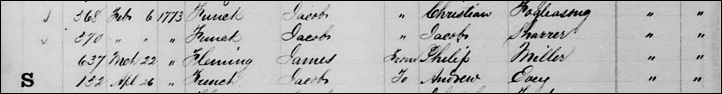 " 368 Feb 6 1773 Funck Jacob " Christian Fogleasong " "
" 370 " " " Funck Jacob " Jacob Sharrer " "
637 Mch 22 " Fleming James From Philip Miller " "
S 132 Apl 26 " Funck Jacob To Andrew " "